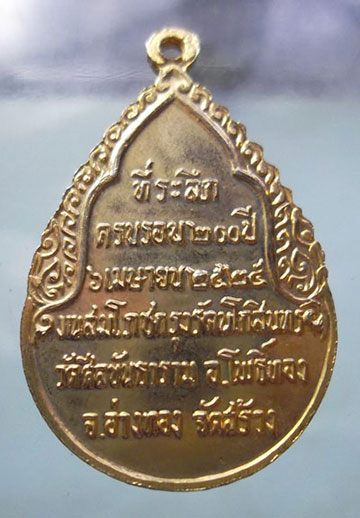 ที่ระลึก
ครบรอบ ๒๐๐ ปี
๖ เมษายน ๒๕๒๕
งานสมโภชกรุงรัตนโกสินทร์
วัดศีลขันธาราม อ.โพธิ์ทอง
จ.อ่างทอง จัดสร้าง